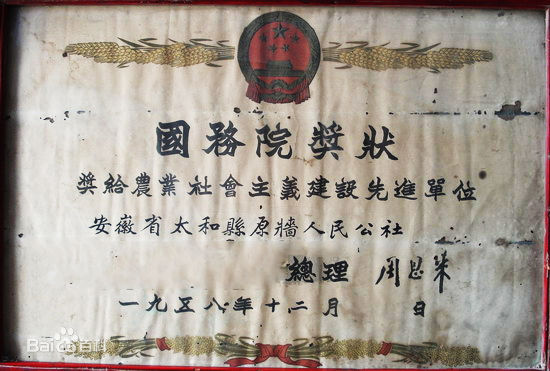 國務院獎狀
獎給農業社會主義建設先進單位
安徽省太和縣原牆人民公社
總理 周恩来
一九五八年十二月 日
Bai百科